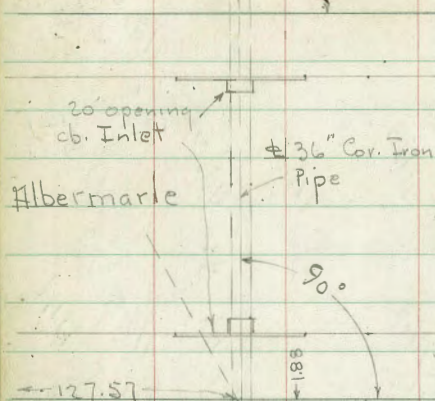 20' opening
cb. Inlet
℄ 36" Cor. Iron
Pipe
Albermarle
90°
88.1
127.57